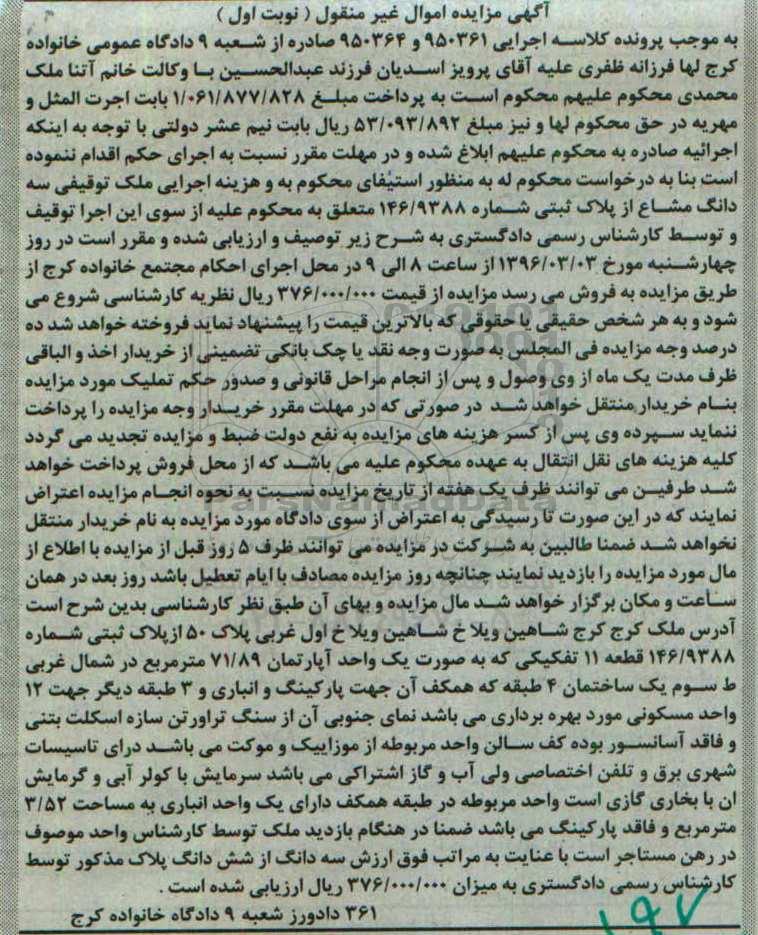 آگهی مزایده اموال غیر منقول ( نوبت اول )
به موجب پرونده کلاسه اجرایی ۹۵۰۳۶۱ و ۹۵۰۳۶۴ صادره از شعبه ۹ دادگاه عمومی خانواده
کرج لها فرزانه ظفری علیه آقای پرویز اسدیان فرزند عبدالحسین با وکالت خانم آتنا ملک
محمدی محکوم علیهم محکوم است به پرداخت مبلغ ۱/۰۶۱/۸۷۷/۸۲۸ بابت اجرت المثل و
مهریه در حق محکوم لها و نیز مبلغ ۵۳/۰۹۳/۸۹۲ ریال بابت نیم عشر دولتی با توجه به اینکه
اجرائیه صادره به محکوم علیهم ابلاغ شده و در مهلت مقرر نسبت به اجرای حکم اقدام ننموده
است بنا به درخواست محکوم له به منظور استیفای محکوم به و هزینه اجرایی ملک توقیفی سه
دانگ مشاع از پلاک ثبتی شماره ۱۴۶/۹۳۸۸ متعلق به محکوم علیه از سوی این اجرا توقیف
و توسط کارشناس رسمی دادگستری به شرح زیر توصیف و ارزیابی شده و مقرر است در روز
چهارشنبه مورخ ۱۳۹۶/۰۳/۰۳ از ساعت ۸ الی ۹ در محل اجرای احکام مجتمع خانواده کرج از
طریق مزایده به فروش می رسد مزایده از قیمت ۳۷۶/۰۰۰/۰۰۰ ریال نظریه کارشناسی شروع می
شود و به هر شخص حقیقی یا حقوقی که بالاترین قیمت را پیشنهاد نماید فروخته خواهد شد ده
درصد وجه مزایده فی المجلس به صورت وجه نقد یا چک بانکی تضمینی از خریدار اخذ و الباقی
ظرف مدت یک ماه از وی وصول و پس از انجام مراحل قانونی و صدور حکم تملیک مورد مزایده
بنام خریدار منتقل خواهد شد در صورتی که در مهلت مقرر خریدار وجه مزایده را پرداخت
ننماید سپرده وی پس از کسر هزینه های مزایده به نفع دولت ضبط و مزایده تجدید می گردد
کلیه هزینه های نقل انتقال به عهده محکوم علیه می باشد که از محل فروش پرداخت خواهد
شد طرفین می توانند ظرف یک هفته از تاریخ مزایده نسبت به نحوه انجام مزایده اعتراض
نمایند که در این صورت تا رسیدگی به اعتراض از سوی دادگاه مورد مزایده به نام خریدار منتقل
نخواهد شد ضمنا طالبین به شرکت در مزایده می توانند ظرف ۵ روز قبل از مزایده با اطلاع از
مال مورد مزایده را بازدید نمایند چنانچه روز مزایده مصادف با ایام تعطیل باشد روز بعد در همان
ساعت و مکان برگزار خواهد شد مال مزایده و بهای آن طبق نظر کارشناسی بدین شرح است
آدرس ملک کرج کرج شاهین ویلا خ شاهین ویلا خ اول غربی پلاک ۵۰ ازپلاک ثبتی شماره
۱۴۶/۹۳۸۸ قطعه ۱۱ تفکیکی که به صورت یک واحد آپارتمان ۷۱/۸۹ مترمربع در شمال غربی
ط سوم یک ساختمان ۴ طبقه که همکف آن جهت پارکینگ و انباری و ۳ طبقه دیگر جهت ۱۲
واحد مسکونی مورد بهره برداری می باشد نمای جنوبی آن از سنگ تراورتن سازه اسکلت بتنی
و فاقد آسانسور بوده کف سالن واحد مربوطه از موزاییک و موکت می باشد درای تاسیسات
شهری برق و تلفن اختصاصی ولی آب و گاز اشتراکی می باشد سرمایش با کولر آبی و گرمایش
ان با بخاری گازی است واحد مربوطه در طبقه همکف دارای یک واحد انباری به مساحت ۳/۵۲
مترمربع و فاقد پارکینگ می باشد ضمنا در هنگام بازدید ملک توسط کارشناس واحد موصوف
در رهن مستاجر است با عنایت به مراتب فوق ارزش سه دانگ از شش دانگ پلاک مذکور توسط
کارشناس رسمی دادگستری به میزان ۳۷۶/۰۰۰/۰۰۰ ریال ارزیابی شده است .
۳۶۱ دادورز شعبه ۹ دادگاه خانواده کرج
۱۹۷
ParsNamadData